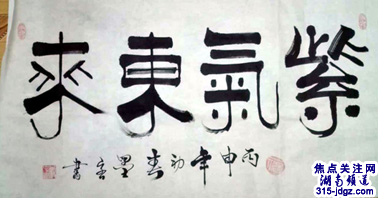 紫氣東來
丙申年初春墨金書
焦点关注网
湖南频道
315-jdgz.com